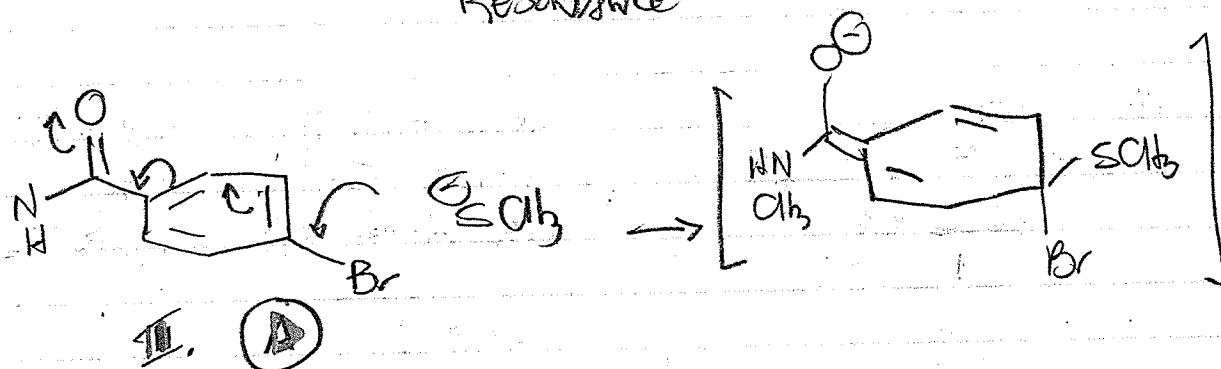 Resonance
O
N
H
Br
⊖SCH3
→
O⊖
HN
CH3
SCH3
Br
II. A